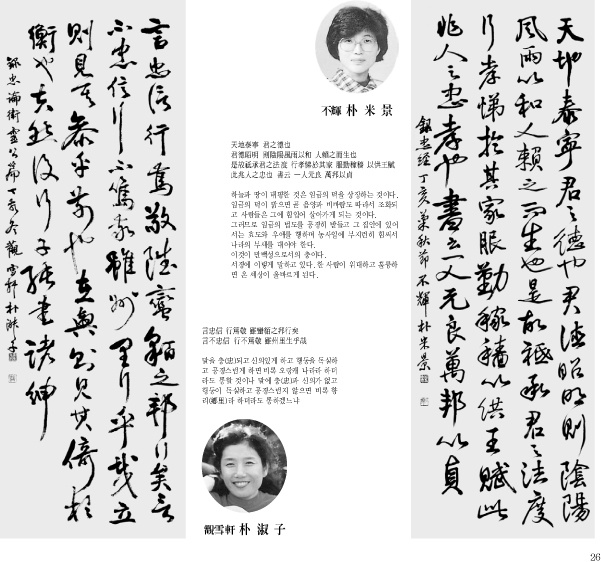 不輝 朴 米 景
天地泰寧 君之德也
君德昭明 則陰陽風雨以和 人賴之而生也
是故祗承君之法度 行孝悌於其家 服勤稼穡 以供王賦
此兆人之忠也 書云 一人元良 萬邦以貞
하늘과 땅이 태평한 것은 임금의 덕을 상징하는 것이다.
임금의 덕이 밝으면 곧 음양과 비바람도 따라서 조화되
고 사람들은 그에 힘입어 살아가게 되는 것이다.
그러므로 임금의 법도를 공경히 받들고 그 집안에 있어
서는 효도와 우애를 행하며 농사일에 부지런히 힘써서
나라의 부세를 대어야 한다.
이것이 만백성으로서의 충이다.
서경에 이렇게 말하고 있다. 한 사람이 위대하고 훌륭하
면 온 세상이 올바르게 된다.
言忠信 行篤敬 雖蠻貊之邦行矣
言不忠信 行不篤敬 雖州里行乎哉
말을 충(忠)되고 신의있게 하고 행동을 독실하
고 공경스럽게 하면 비록 오랑캐 나라라 하더
라도 통할 것이나 말에 충(忠)과 신의가 없고
행동이 독실하고 공경스럽지 않으면 비록 향
리(鄕里)라 하더라도 통하겠느냐
觀雪軒 朴 淑 子
天地泰寧君之德也君德昭明則陰陽
風雨以和人賴之而生也是故祗承君之法度
行孝悌於其家服勤稼穡以供王賦此
兆人之忠孝也書云一人元良萬邦以貞
錄忠經 丁亥菊秋節 不輝 朴米景
言忠信行篤敬雖蠻貊之邦行矣言
不忠信行不篤敬雖州里行乎哉立
則見其參於前也在輿則見其倚於
衡也夫然後行子張書諸紳
論衛靈公篇 丁亥冬 觀雪軒 朴淑子
26